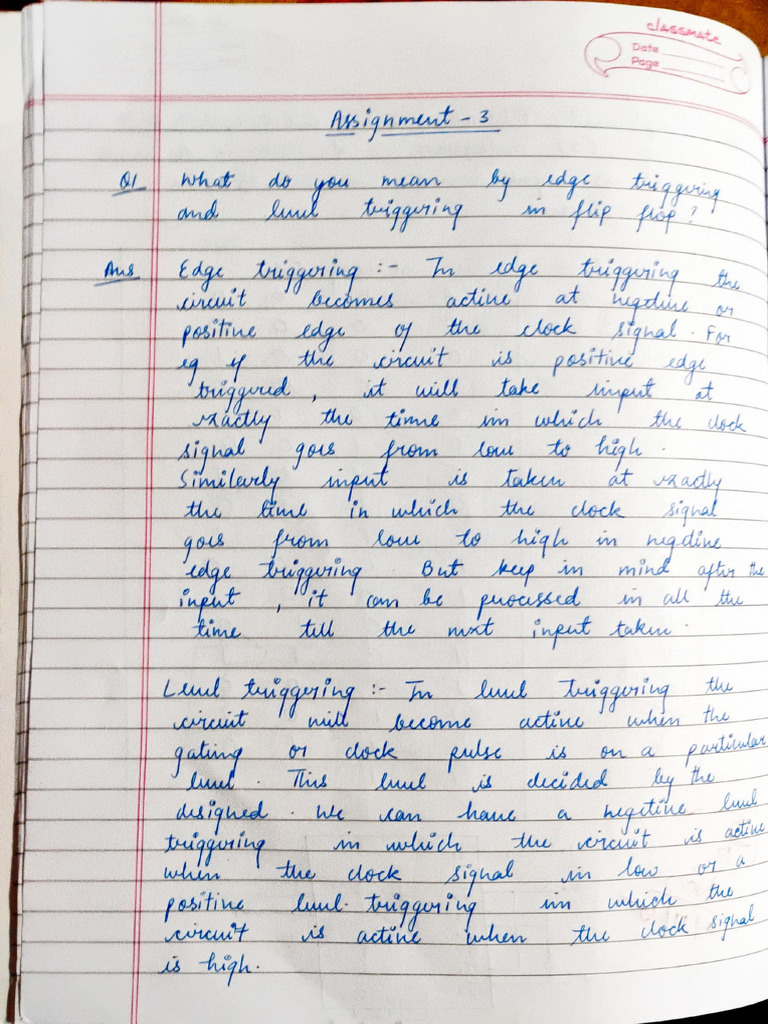 classmate
Date
Page
Assignment - 3
Q1 What do you mean by edge triggering
and level triggering in flip flop?
Ans Edge triggering :- In edge triggering the
circuit becomes active at negative or
positive edge of the clock signal. For
eg if the circuit is positive edge
triggered, it will take input at
exactly the time in which the clock
signal goes from low to high.
Similarly input is taken at exactly
the time in which the clock signal
goes from low to high in negative
edge triggering. But keep in mind after the
input, it can be processed in all the
time till the next input taken.
Level triggering :- In level triggering the
circuit will become active when the
gating or clock pulse is on a particular
level. This level is decided by the
designed. We can have a negative level
triggering in which the circuit is active
when the clock signal in low or a
positive level triggering in which the
circuit is active when the clock signal
is high.